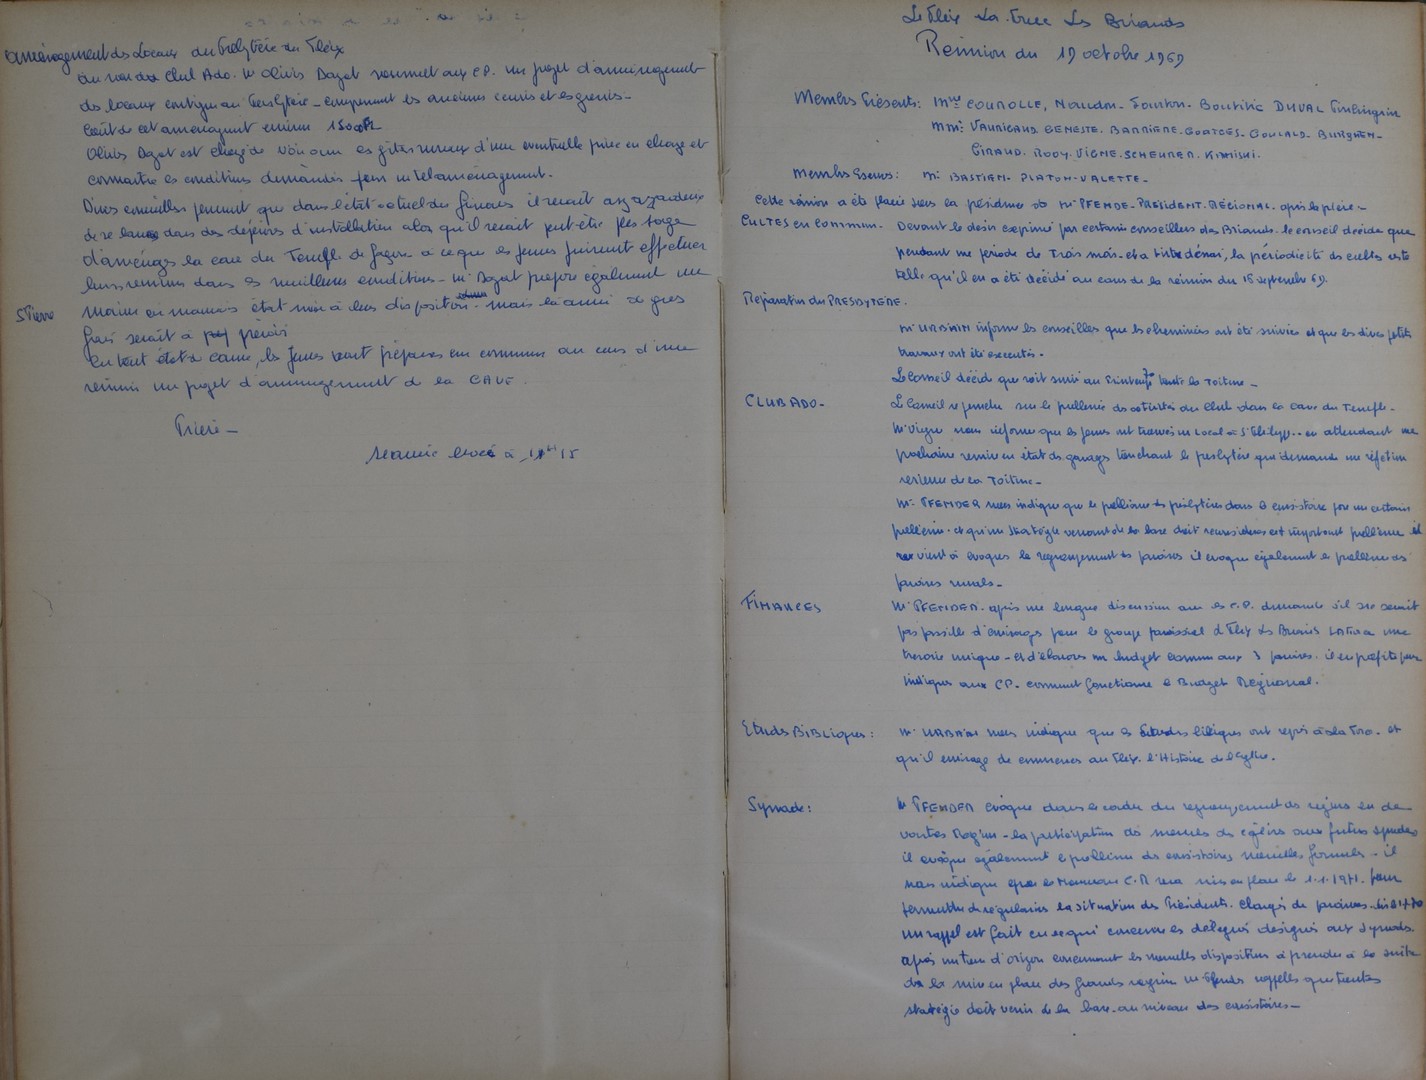 aménagement des Locaux du Presbytère du Fleix
Au nom du Club Ado. Mr Olivier Dazat soumet aux C.P. un projet d'aménagement
des locaux contigus au Presbytère - comprenant les anciennes écuries et greniers -
Coût de cet aménagement environ
Olivier Dazat est chargé de voir avec les gîtes ruraux d'une éventuelle prise en charge et
connaître les conditions demandées pour un tel aménagement.
Divers conseillers pensent que dans l'état actuel des finances il serait assez hasardeux
de se lancer dans des dépenses d'installation alors qu'il serait peut-être plus sage
d'aménager la cave du Temple de façon à ce que les jeunes puissent effectuer
leurs réunions dans les meilleures conditions - Mr Dazat propose également une
St Pierre
maison en mauvais état mise à leur disposition - mais là aussi de gros
frais serait à prévoir
En tout état de cause, les jeunes vont préparer en commun au cours d'une
réunion un projet d'aménagement de la CAVE.
Prière -
Séance levée à
Le Fleix La Force Les Briands
Réunion du 19 octobre 1969
Membres Présents: Mme COUROLLE, Naudon - Fonton - Boutitie DUVAL
MM: VAURIGAUD. GENESTE. BARRIERE. GEORGES. GOULARD. BURGHEN -
GIRAUD. RODY. VIGNE. SCHEURER.
Membres Excusés: Mr BASTIEN - PLATON - VALETTE -
Cette réunion a été placée sous la présidence de Mr PFENDER - PRESIDENT. REGIONAL. après la prière -
CULTES en commun - Devant le désir exprimé par certains conseillers des Briands - le conseil décide que
pendant une période de Trois mois - et à titre d'essai, la périodicité des cultes reste
telle qu'il en a été décidé au cours de la réunion du 15 septembre 69.
Réparation du PRESBYTERE.
Mr URBAIN informe les conseillers que les cheminées ont été suivies et que les divers petits
travaux ont été exécutés -
Le Conseil décide que soit suivi au Printemps toute la Toiture -
CLUB ADO - Le Conseil se penche sur le problème des activités du Club dans la cave du Temple -
Mr Vigne nous informe que les jeunes ont trouvé un Local à St Philippe - en attendant une
prochaine remise en état des garages touchant le presbytère qui demande une réfection
sérieuse de la Toiture -
Mr PFENDER nous indique que le problème des presbytères dans le consistoire pose un certain
problème - et qu'une stratégie venant de la base doit reconsidérer cet important problème il
en vient à évoquer le regroupement des paroisses il évoque également le problème des
paroisses rurales -
FINANCES Mr PFENDER - après une longue discussion avec les C.P. demande s'il ne serait
pas possible d'envisager pour le groupe paroissial d'Fleix Les Briands LAforce une
trésorerie unique - et d'élaborer un budget commun aux 3 paroisses. il en profite pour
indiquer aux CP. comment fonctionne le Budget Régional.
Etudes BIBLiques: Mr URBAIN nous indique que les Etudes bibliques ont repris à La Force - et
qu'il envisage de commencer au Fleix l'Histoire de l'Eglise.
Synode: Mr PFENDER évoque dans le cadre du regroupement des régions en de
vastes Région - la participation des membres des églises aux futurs synodes
il évoque également le problème des consistoires nouvelles formules - il
nous indique que le Nouveau C.R sera mis en place le 1.1.1971. pour
permettre de régulariser la situation des Présidents. Chargés de paroisses
Un rappel est fait en ce qui concerne les délégués désignés aux Synodes.
après un tour d'orizon concernant les nouvelles disposition à prendre à la suite
de la mise en place des grands région Mr Pfender rappelle que toutes
stratégie doit venir de la base - au niveau des consistoires -